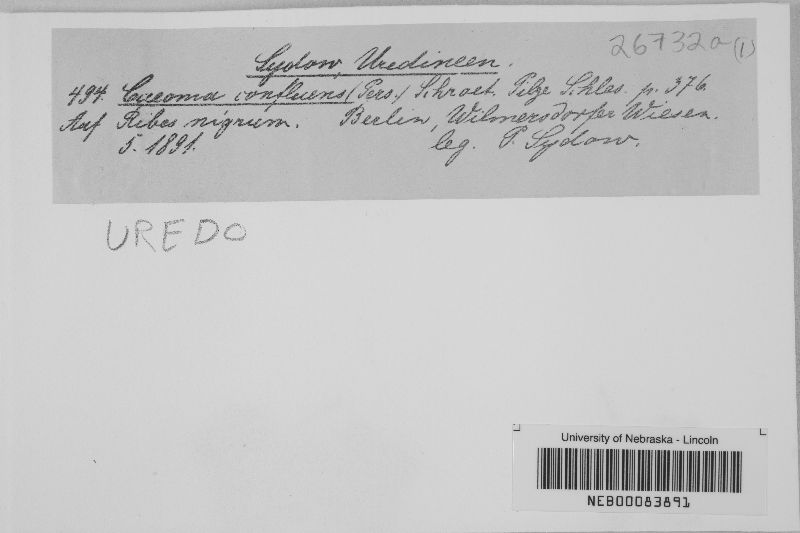 26732a (1)
Sydow, Uredineen.
494. Caeoma confluens (Pers.) Schroet. Pilze Schles. p. 376.
Auf Ribes nigrum. Berlin, Wilmersdorfer Wiesen.
5. 1891. leg. P. Sydow.
UREDO
University of Nebraska - Lincoln
NEB00083891